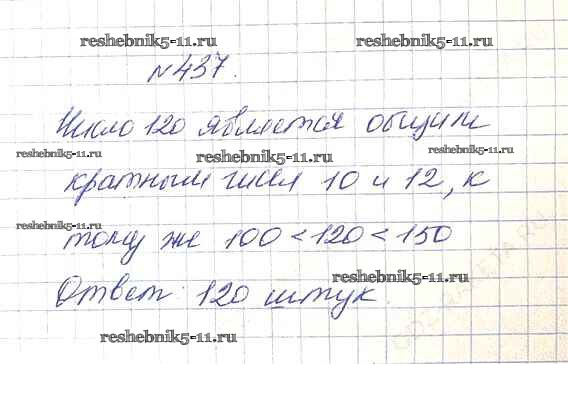 reshebnik5-11.ru reshebnik5-11.ru
№437.
Число 120 является общим
reshebnik5-11.ru reshebnik5-11.ru reshebnik5-11.ru
кратным чисел 10 и 12, к
reshebnik5-11.ru
тому же 100 < 120 < 150
reshebnik5-11.ru
Ответ: 120 штук
reshebnik5-11.ru